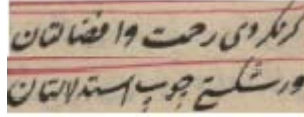 گر نکردی رحمت و افضالتان
ور شکستی چوب استدلالتان